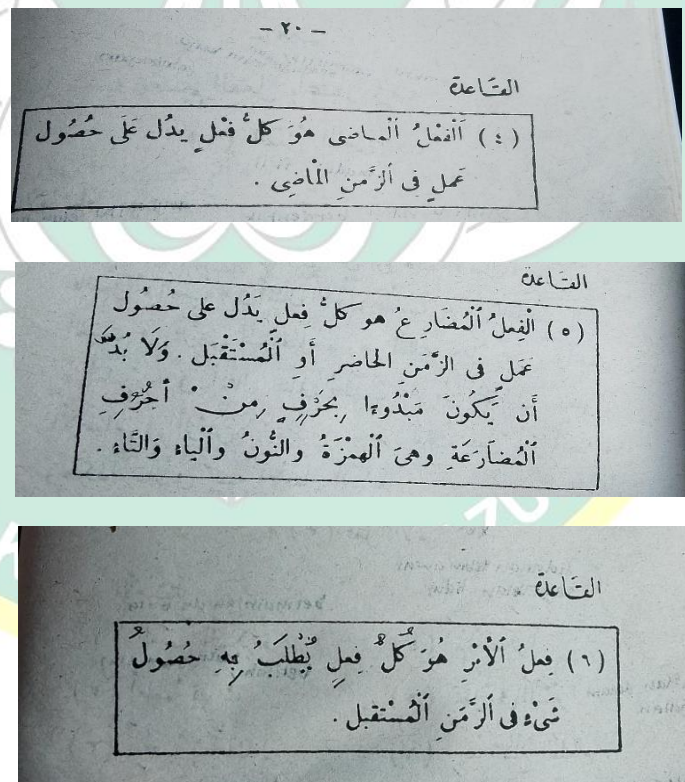 – ٢٠ –
القاعدة
(٤) اَلْفِعْلُ اَلْماضى هُوَ كلُّ فعْلٍ يدُل عَلَى حُصُول
عَمل فى الزَّمنِ الْمَاضِى .
القاعدة
(٥) الْفِعلُ الْمُضَارِعُ هو كلُّ فِعلٍ يَدُل على حُصُول
عَمَلٍ فى الزَّمَنِ الحَاضرِ أَوِ الْمُسْتَقْبَل . وَلَا بُدَّ
أَن يَكُونَ مَبْدُوءا بِحَرْفٍ مِنْ أَحْرُفِ
الْمُضَارَعَةِ وهىَ الْهمْزَةُ والنُّونُ والْياء وَالتَّاء .
القاعدة
(٦) فِعلُ الْأَمْرِ هُوَ كُلُّ فِعلٍ يُطْلَبُ بِهِ حُصُولُ
شَىْءٍ فى الزَّمَنِ الْمُسْتقبل .